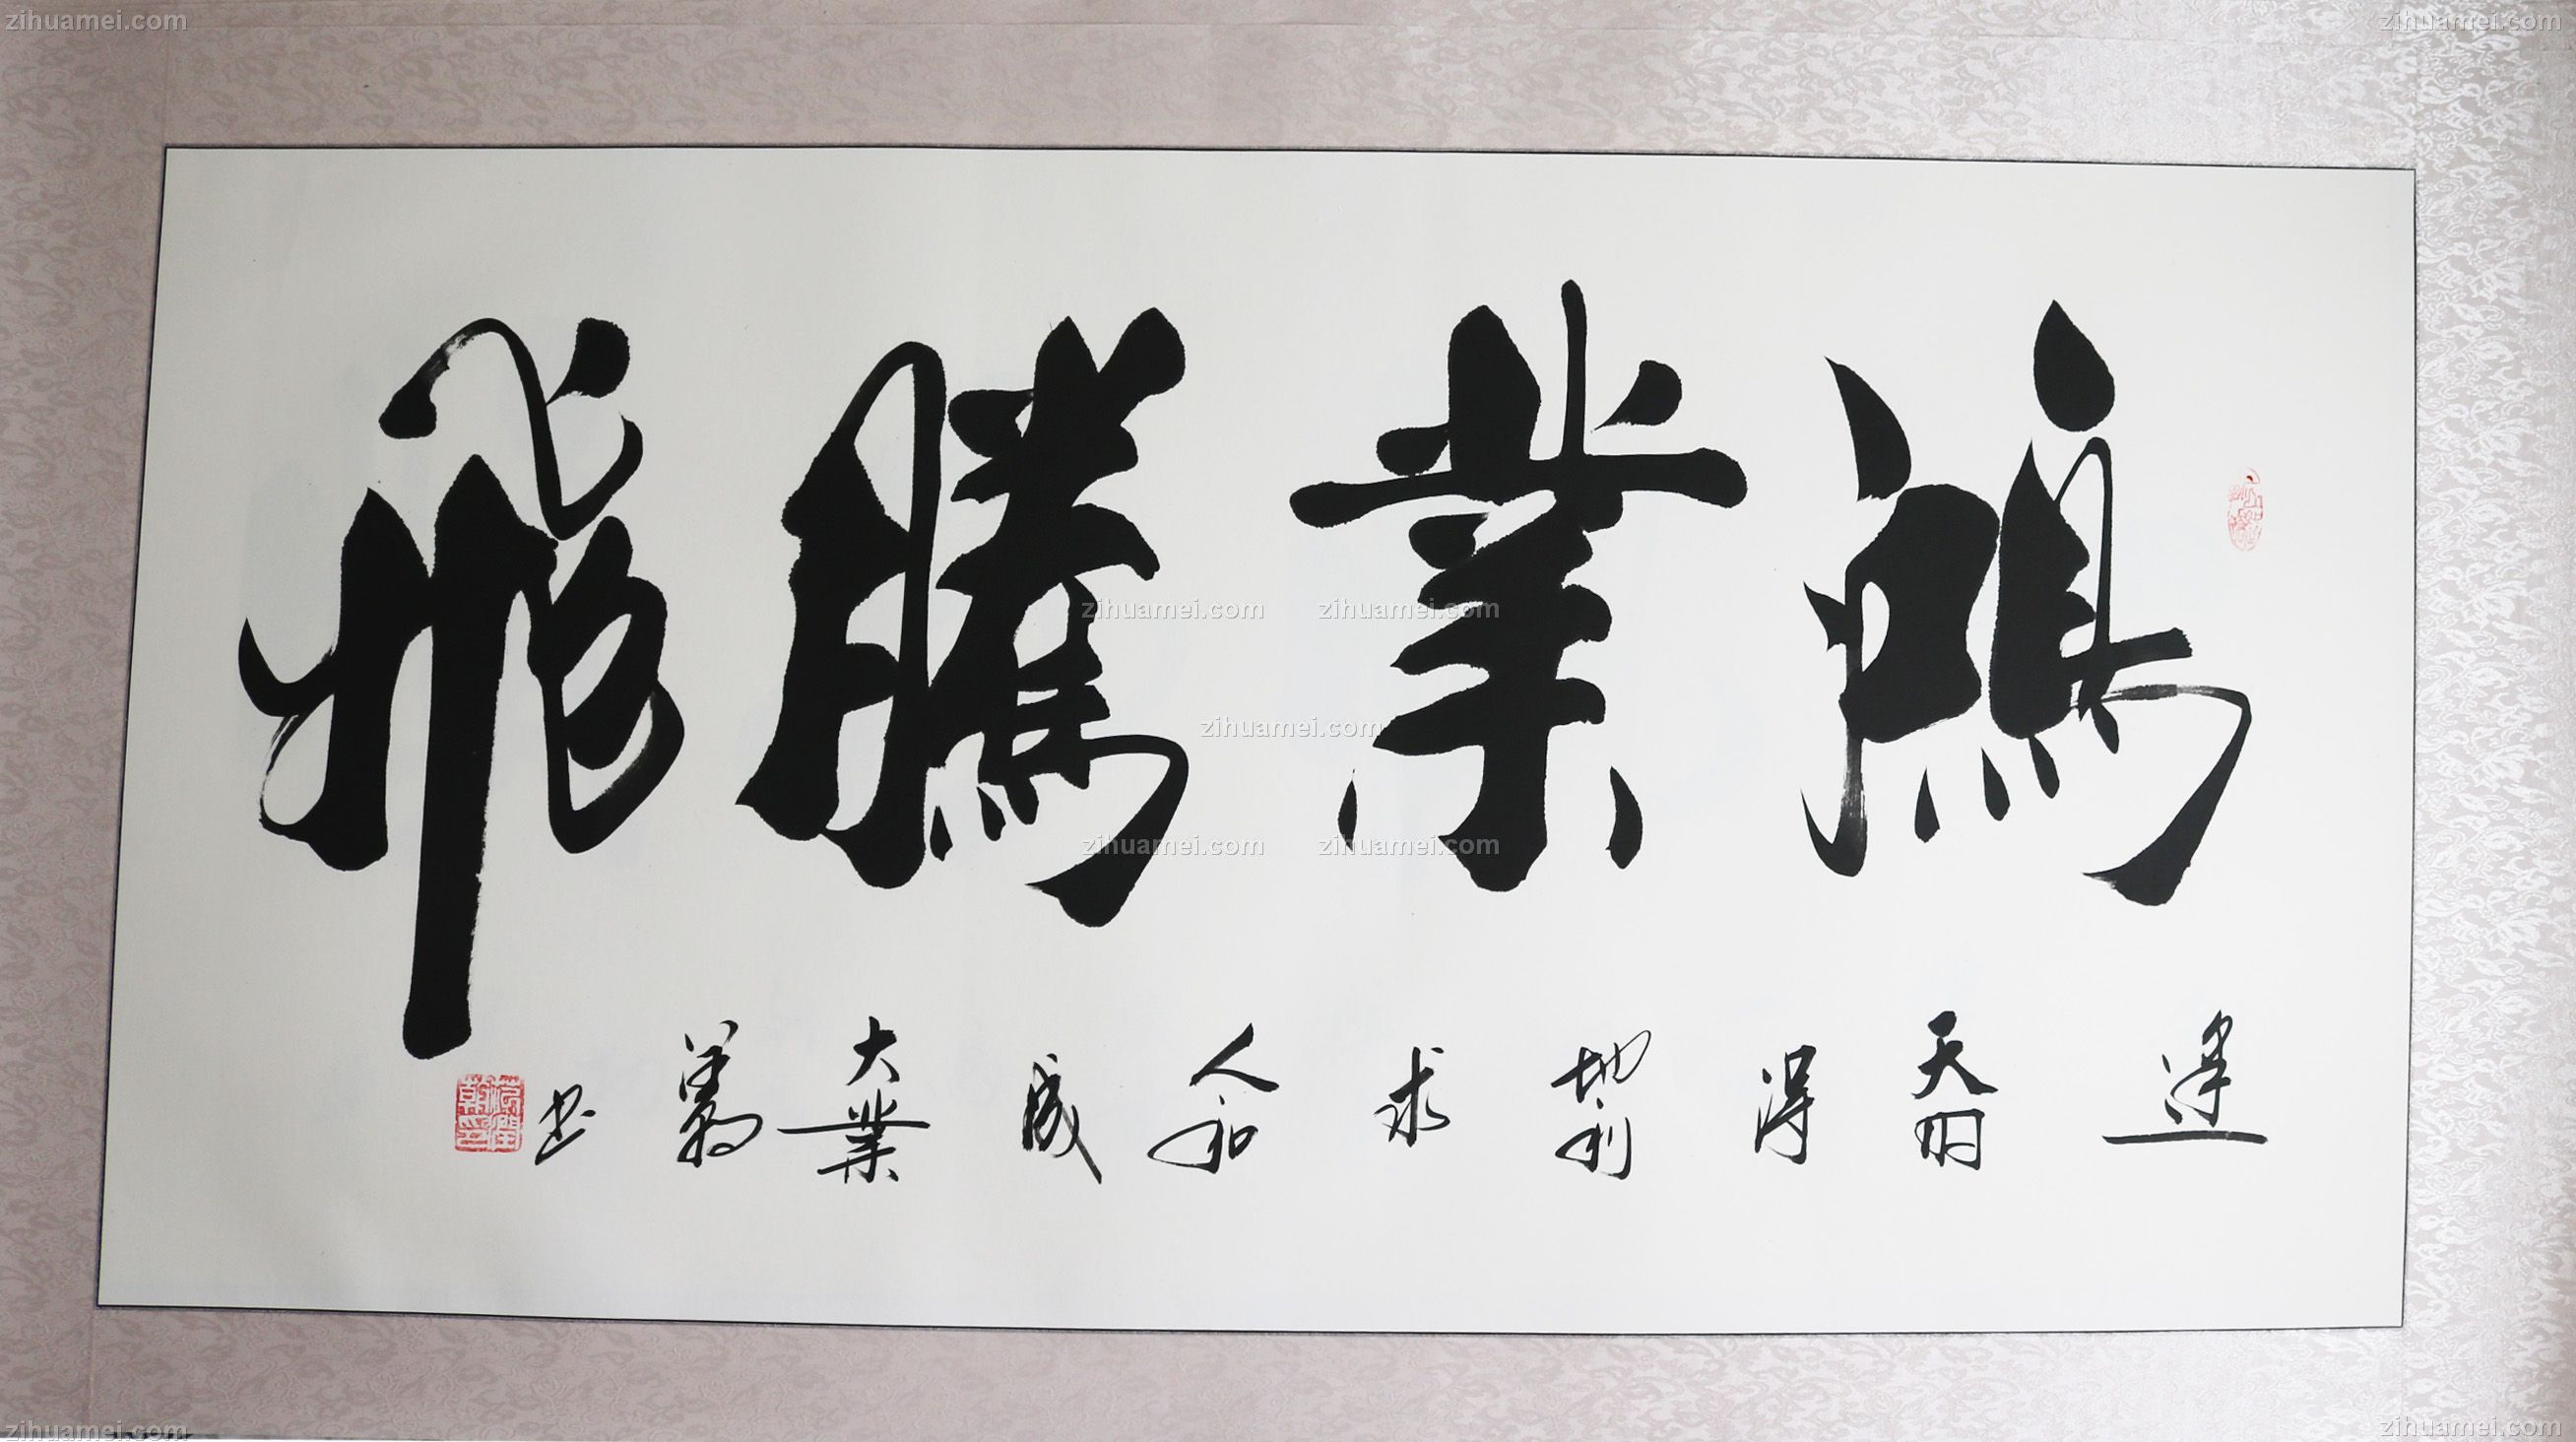 鴻業騰飛
逢天时得地利求人和成大業
书
zihuamei.com
zihuamei.com
zihuamei.com
zihuamei.com
zihuamei.com
zihuamei.com
zihuamei.com
zihuamei.com
zihuamei.com